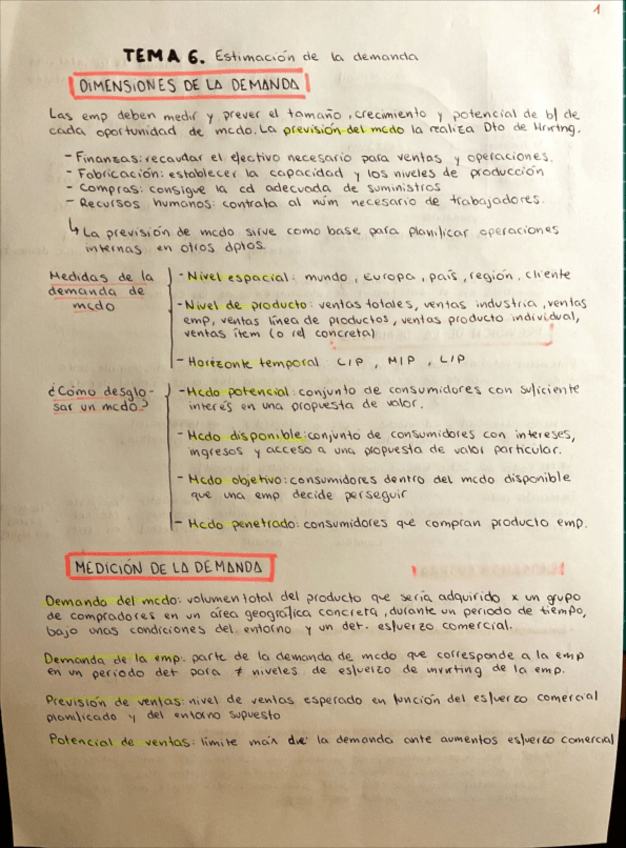 1
TEMA 6. Estimación de la demanda
DIMENSIONES DE LA DEMANDA
Las emp deben medir y prever el tamaño, crecimiento y potencial de b/ de
cada oportunidad de mcdo. La previsión del mcdo la realiza Dto de Mrkting.
- Finanzas: recaudar el efectivo necesario para ventas y operaciones.
- Fabricación: establecer la capacidad y los niveles de producción
- Compras: consigue la cd adecuada de suministros
- Recursos humanos: contrata al núm necesario de trabajadores.
↳ La previsión de mcdo sirve como base para planificar operaciones
internas en otros dptos.
Medidas de la
demanda de
mcdo
- Nivel espacial: mundo, Europa, país, región, cliente
- Nivel de producto: ventas totales, ventas industria, ventas
emp, ventas línea de productos, ventas producto individual,
ventas ítem (o ref concreta)
- Horizonte temporal: C/P, M/P, L/P
¿Cómo desglo-
sar un mcdo?
- Mcdo potencial: conjunto de consumidores con suficiente
interés en una propuesta de valor.
- Mcdo disponible: conjunto de consumidores con intereses,
ingresos y acceso a una propuesta de valor particular.
- Mcdo objetivo: consumidores dentro del mcdo disponible
que una emp decide perseguir
- Mcdo penetrado: consumidores que compran producto emp.
MEDICIÓN DE LA DEMANDA
Demando del mcdo: volumen total del producto que sería adquirido x un grupo
de compradores en un área geográfica concreta, durante un periodo de tiempo,
bajo unas condiciones del entorno y un det. esfuerzo comercial.
Demanda de la emp: parte de la demanda de mcdo que corresponde a la emp
en un periodo det para ≠ niveles de esfuerzo de mrkting de la emp.
Previsión de ventas: nivel de ventas esperado en función del esfuerzo comercial
planificado y del entorno supuesto
Potencial de ventas: límite máx de la demanda ante aumentos esfuerzo comercial